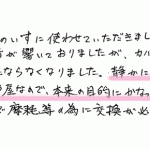 のいすに使わせていただきまし
が響いておりましたが、カル
ならなくなりました。静かに
屋なので、本来の目的にかなっ
摩耗等の為に交換が必